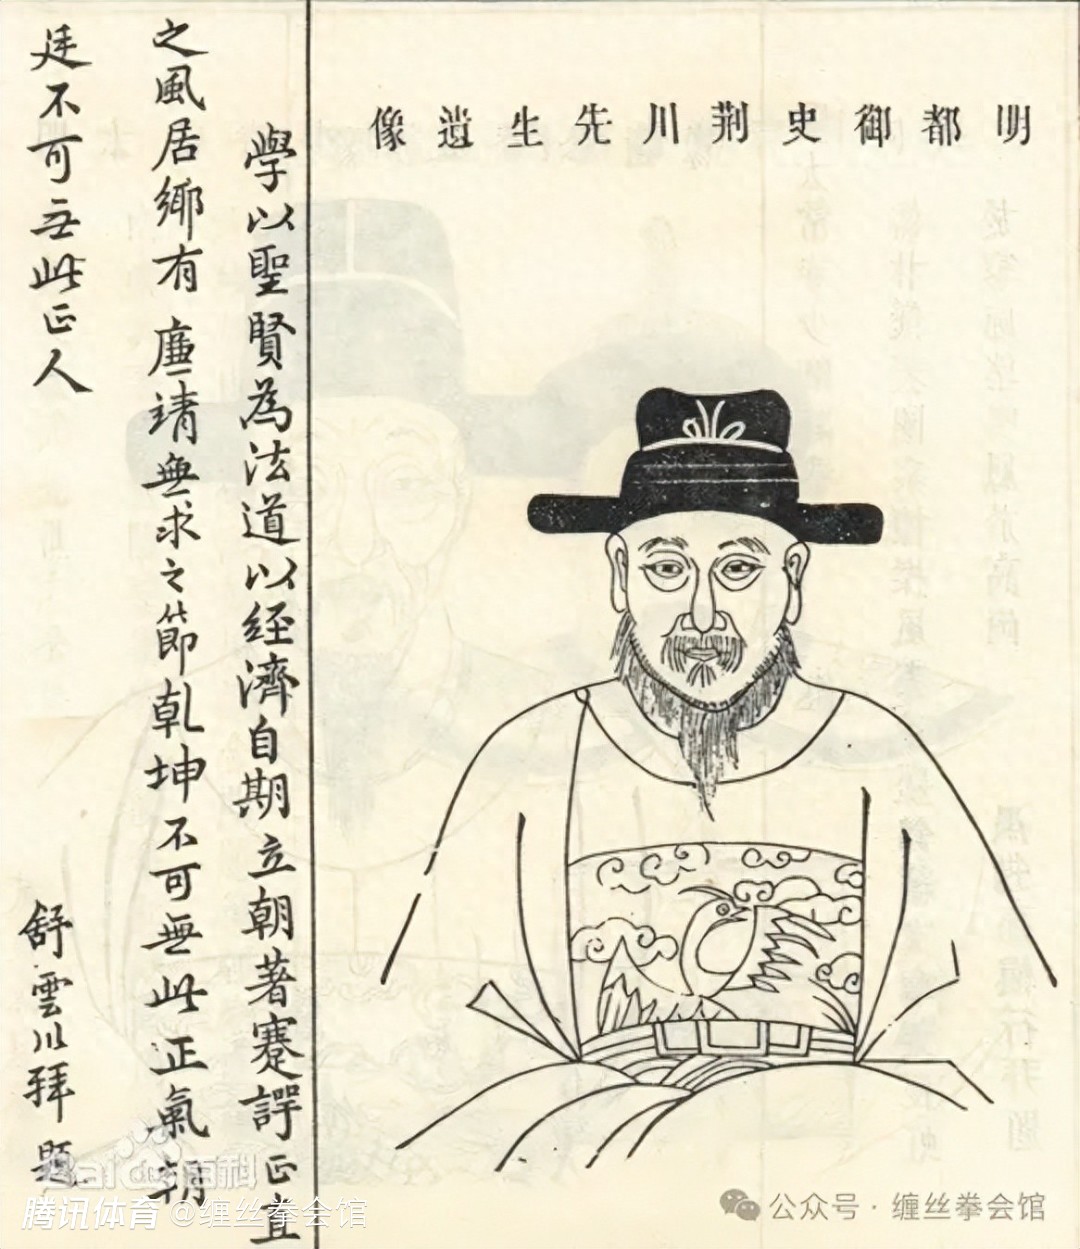 明都御史荆川先生遺像
學以聖賢為法道以经濟自期立朝著蹇諤正直
之風居鄉有廉靖無求之節乾坤不可無此正氣朝
廷不可无此正人
舒雲川拜題
Baidu百科
腾讯体育 @缠丝拳会馆
公众号·缠丝拳会馆